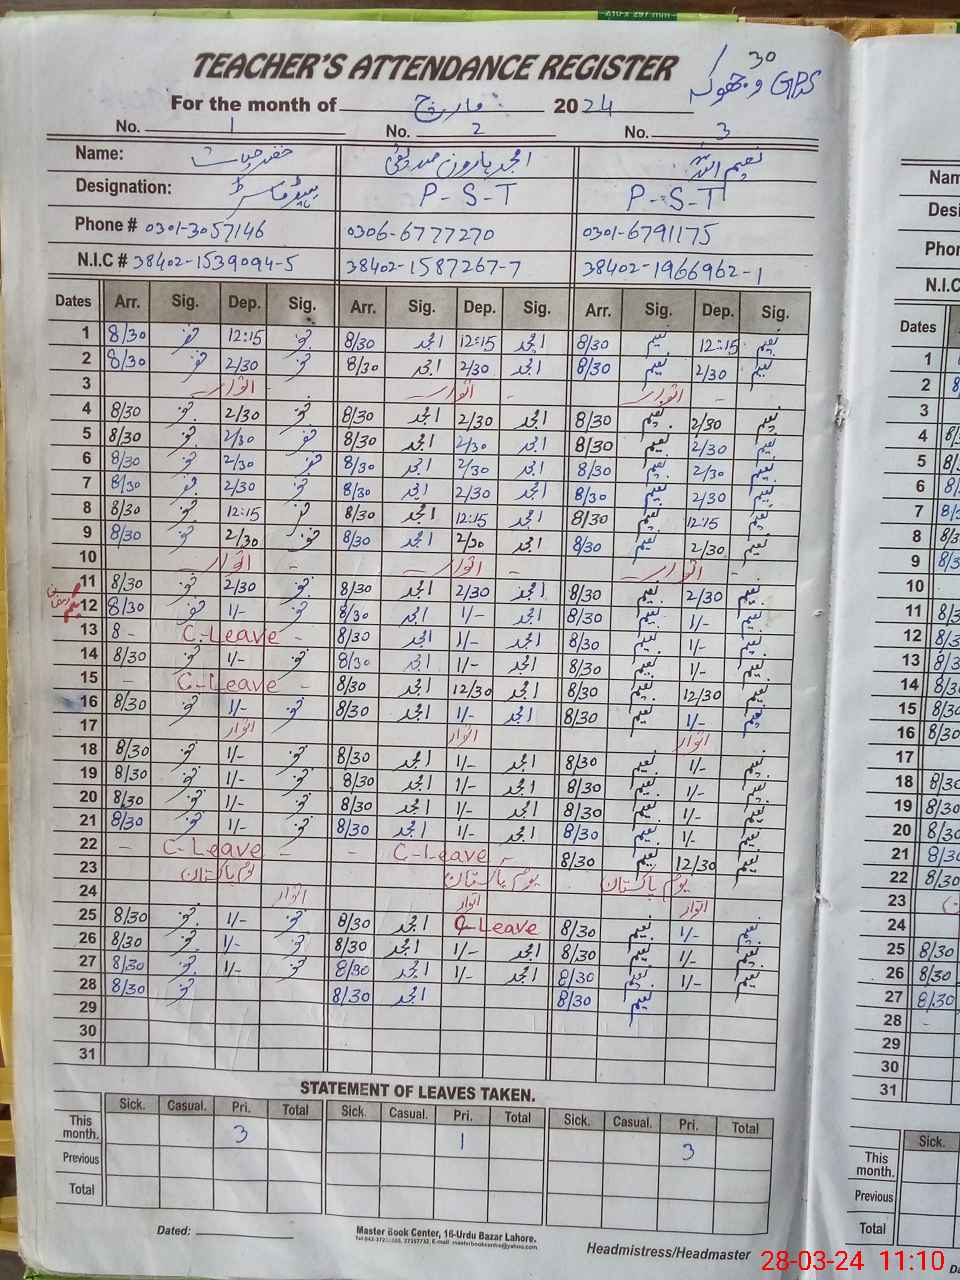 210 x 297 mm
30
TEACHER'S ATTENDANCE REGISTER
GPS
For the month of مارچ 2024
No. 1 No. 2 No. 3
Name: خضر حیات امجد ہارون صدیقی نعیم اللہ
Designation: ہیڈ ماسٹر P-S-T P-S-T
Phone # 0301-3057146 0306-6777270 0301-6791175
N.I.C # 38402-1539094-5 38402-1587267-7 38402-1966962-1
Dates Arr. Sig. Dep. Sig. Arr. Sig. Dep. Sig. Arr. Sig. Dep. Sig.
1 8/30 12:15 8/30 امجد 12:15 امجد 8/30 نعیم 12:15 نعیم
2 8/30 2/30 8/30 امجد 2/30 امجد 8/30 نعیم 2/30 نعیم
3 اتوار اتوار اتوار
4 8/30 2/30 8/30 امجد 2/30 امجد 8/30 نعیم 2/30 نعیم
5 8/30 2/30 8/30 امجد 2/30 امجد 8/30 نعیم 2/30 نعیم
6 8/30 2/30 8/30 امجد 2/30 امجد 8/30 نعیم 2/30 نعیم
7 8/30 2/30 8/30 امجد 2/30 امجد 8/30 نعیم 2/30 نعیم
8 8/30 12:15 8/30 امجد 12:15 امجد 8/30 نعیم 12:15 نعیم
9 8/30 2/30 8/30 امجد 2/30 امجد 8/30 نعیم 2/30 نعیم
10 اتوار اتوار اتوار
11 8/30 2/30 8/30 امجد 2/30 امجد 8/30 نعیم 2/30 نعیم
12 8/30 1/- 8/30 امجد 1/- امجد 8/30 نعیم 1/- نعیم
13 8 - C-Leave - 8/30 امجد 1/- امجد 8/30 نعیم 1/- نعیم
14 8/30 1/- 8/30 امجد 1/- امجد 8/30 نعیم 1/- نعیم
15 - C-Leave - 8/30 امجد 12/30 امجد 8/30 نعیم 12/30 نعیم
16 8/30 1/- 8/30 امجد 1/- امجد 8/30 نعیم 1/- نعیم
17 اتوار اتوار اتوار
18 8/30 1/- 8/30 امجد 1/- امجد 8/30 نعیم 1/- نعیم
19 8/30 1/- 8/30 امجد 1/- امجد 8/30 نعیم 1/- نعیم
20 8/30 1/- 8/30 امجد 1/- امجد 8/30 نعیم 1/- نعیم
21 8/30 1/- 8/30 امجد 1/- امجد 8/30 نعیم 1/- نعیم
22 - C-Leave - - C-Leave - 8/30 نعیم 12/30 نعیم
23 یوم پاکستان یوم پاکستان یوم پاکستان
24 اتوار اتوار اتوار
25 8/30 1/- 8/30 امجد C-Leave 8/30 نعیم 1/- نعیم
26 8/30 1/- 8/30 امجد 1/- امجد 8/30 نعیم 1/- نعیم
27 8/30 1/- 8/30 امجد 1/- امجد 8/30 نعیم 1/- نعیم
28 8/30 8/30 امجد 8/30 نعیم
29
30
31
STATEMENT OF LEAVES TAKEN.
Sick. Casual. Pri. Total Sick. Casual. Pri. Total Sick. Casual. Pri. Total
This month. 3 1 3
Previous
Total
Dated:
Master Book Center, 16-Urdu Bazar Lahore.
Headmistress/Headmaster
Dates
1
2
3
4
5
6
7
8
9
10
11
12
13
14
15
16
17
18
19
20
21
22
23
24
25 8/30
26 8/30
27 8/30
28
29
30
31
Sick.
This month.
Previous
Total
28-03-24 11:10